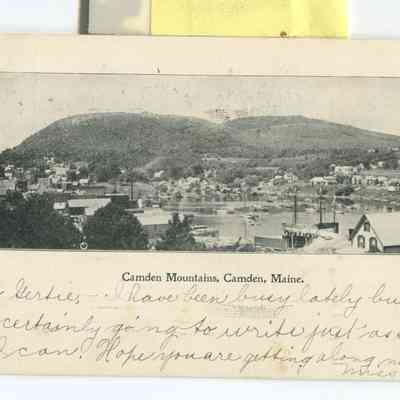 Camden Mountains, Camden, Maine.
Gertie, - I have been busy lately bu
certainly going to write just as s
I can. Hope you are getting along n
miss